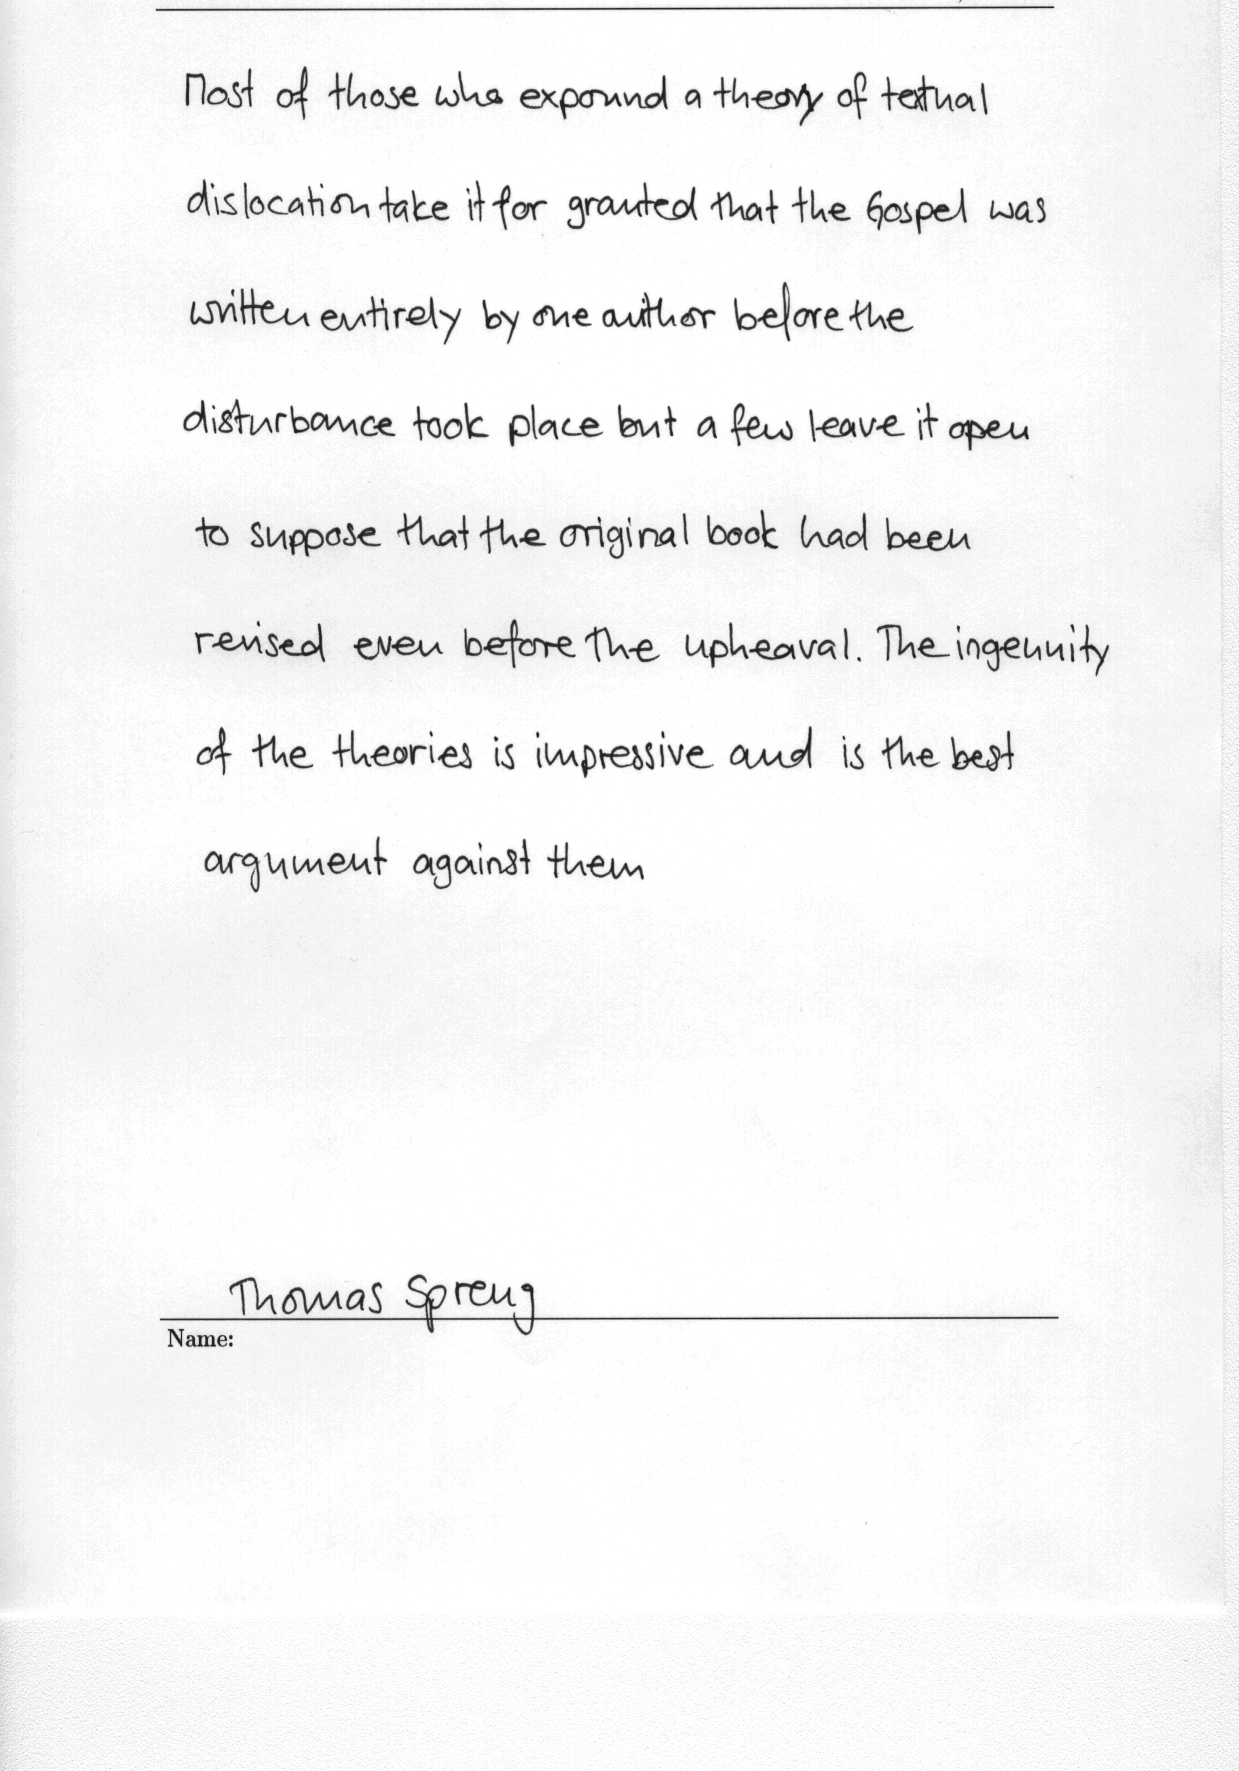 Most of those who expound a theory of textual
dislocation take it for granted that the Gospel was
written entirely by one author before the
disturbance took place but a few leave it open
to suppose that the original book had been
revised even before the upheaval. The ingenuity
of the theories is impressive and is the best
argument against them
Thomas Spreng
Name: